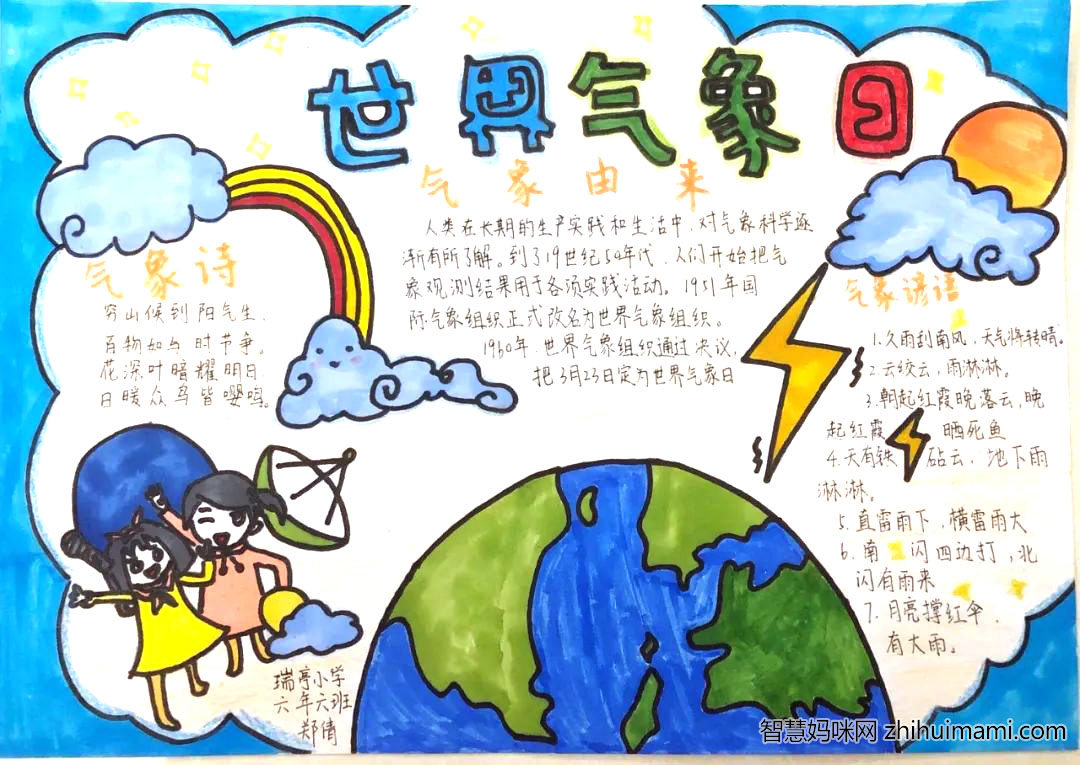 世界气象日
气象由来
人类在长期的生产实践和生活中,对气象科学逐
渐有所了解。到了19世纪50年代,人们开始把气
象观测结果用于各项实践活动。1951年国
际气象组织正式改名为世界气象组织。
1960年,世界气象组织通过决议,
把3月23日定为世界气象日
气象诗
穷山候到阳气生,
百物如与时节争。
花深叶暗耀明日
日暖众鸟皆嘤鸣。
气象谚语
1.久雨刮南风,天气将转晴。
2.云绞云,雨淋淋。
3.朝起红霞晚落云,晚
起红霞 晒死鱼
4.天有铁砧云,地下雨
淋淋。
5.直雷雨下,横雷雨大
6.南闪四边打,北
闪有雨来
7.月亮撑红伞,
有大雨。
瑞亭小学
六年六班
郑倩
智慧妈咪网 zhihuimami.com